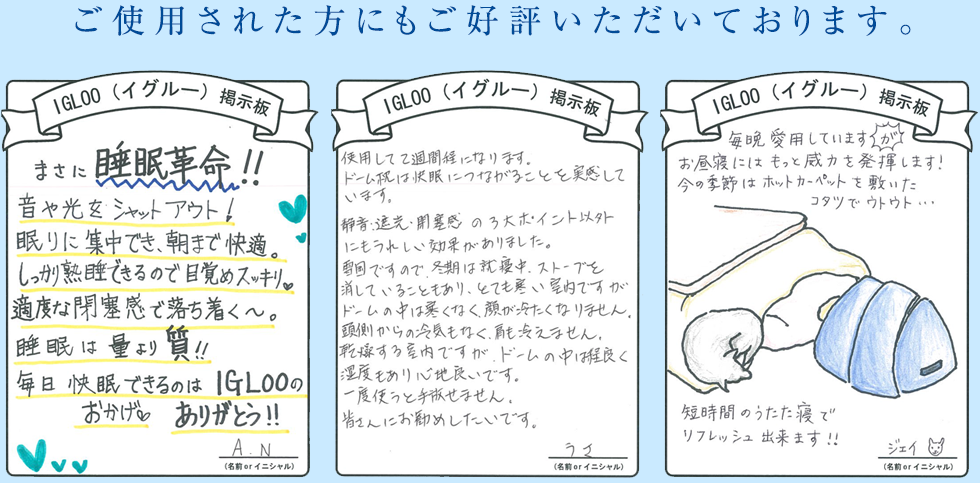 ご使用された方にもご好評いただいております。
IGLOO（イグルー）掲示板
まさに 睡眠革命!!
音や光をシャットアウト!
眠りに集中でき、朝まで快適。
しっかり熟睡できるので目覚めスッキリ♡
適度な閉塞感で落ち着く〜。
睡眠は量より質!!
毎日快眠できるのはIGLOOの
おかげ♡ ありがとう!!
A.N
（名前orイニシャル）
IGLOO（イグルー）掲示板
使用して2週間程になります。
ドーム枕は快眠につながることを実感して
います。
静音・遮光・閉塞感の3大ポイント以外
にもうれしい効果がありました。
雪国ですので、冬期は就寝中、ストーブを
消していることもあり、とても寒い室内ですが
ドームの中は寒くなく、顔が冷たくなりません。
頭側からの冷気もなく、肩も冷えません。
乾燥する室内ですが、ドームの中は程良く
湿度もあり心地良いです。
一度使うと手放せません。
皆さんにお勧めしたいです。
うさ
（名前orイニシャル）
IGLOO（イグルー）掲示板
毎晩愛用していますが
お昼寝にはもっと威力を発揮します!
今の季節はホットカーペットを敷いた
コタツでウトウト…
短時間のうたた寝で
リフレッシュ出来ます!!
ジェイ
（名前orイニシャル）